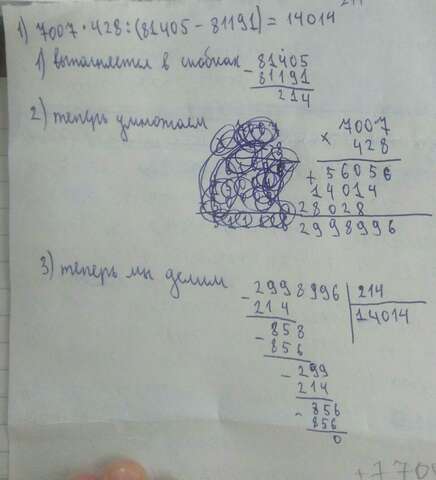 1) 7007 · 428 : (81405 - 81191) = 14014
1) выполняется в скобках - 81405
81191
214
2) теперь умножаем
7007
× 428
+ 56056
14014
28028
2998996
3) теперь мы делим - 2998996 | 214
214 14014
- 858
856
- 299
214
- 856
856
0
+ 770